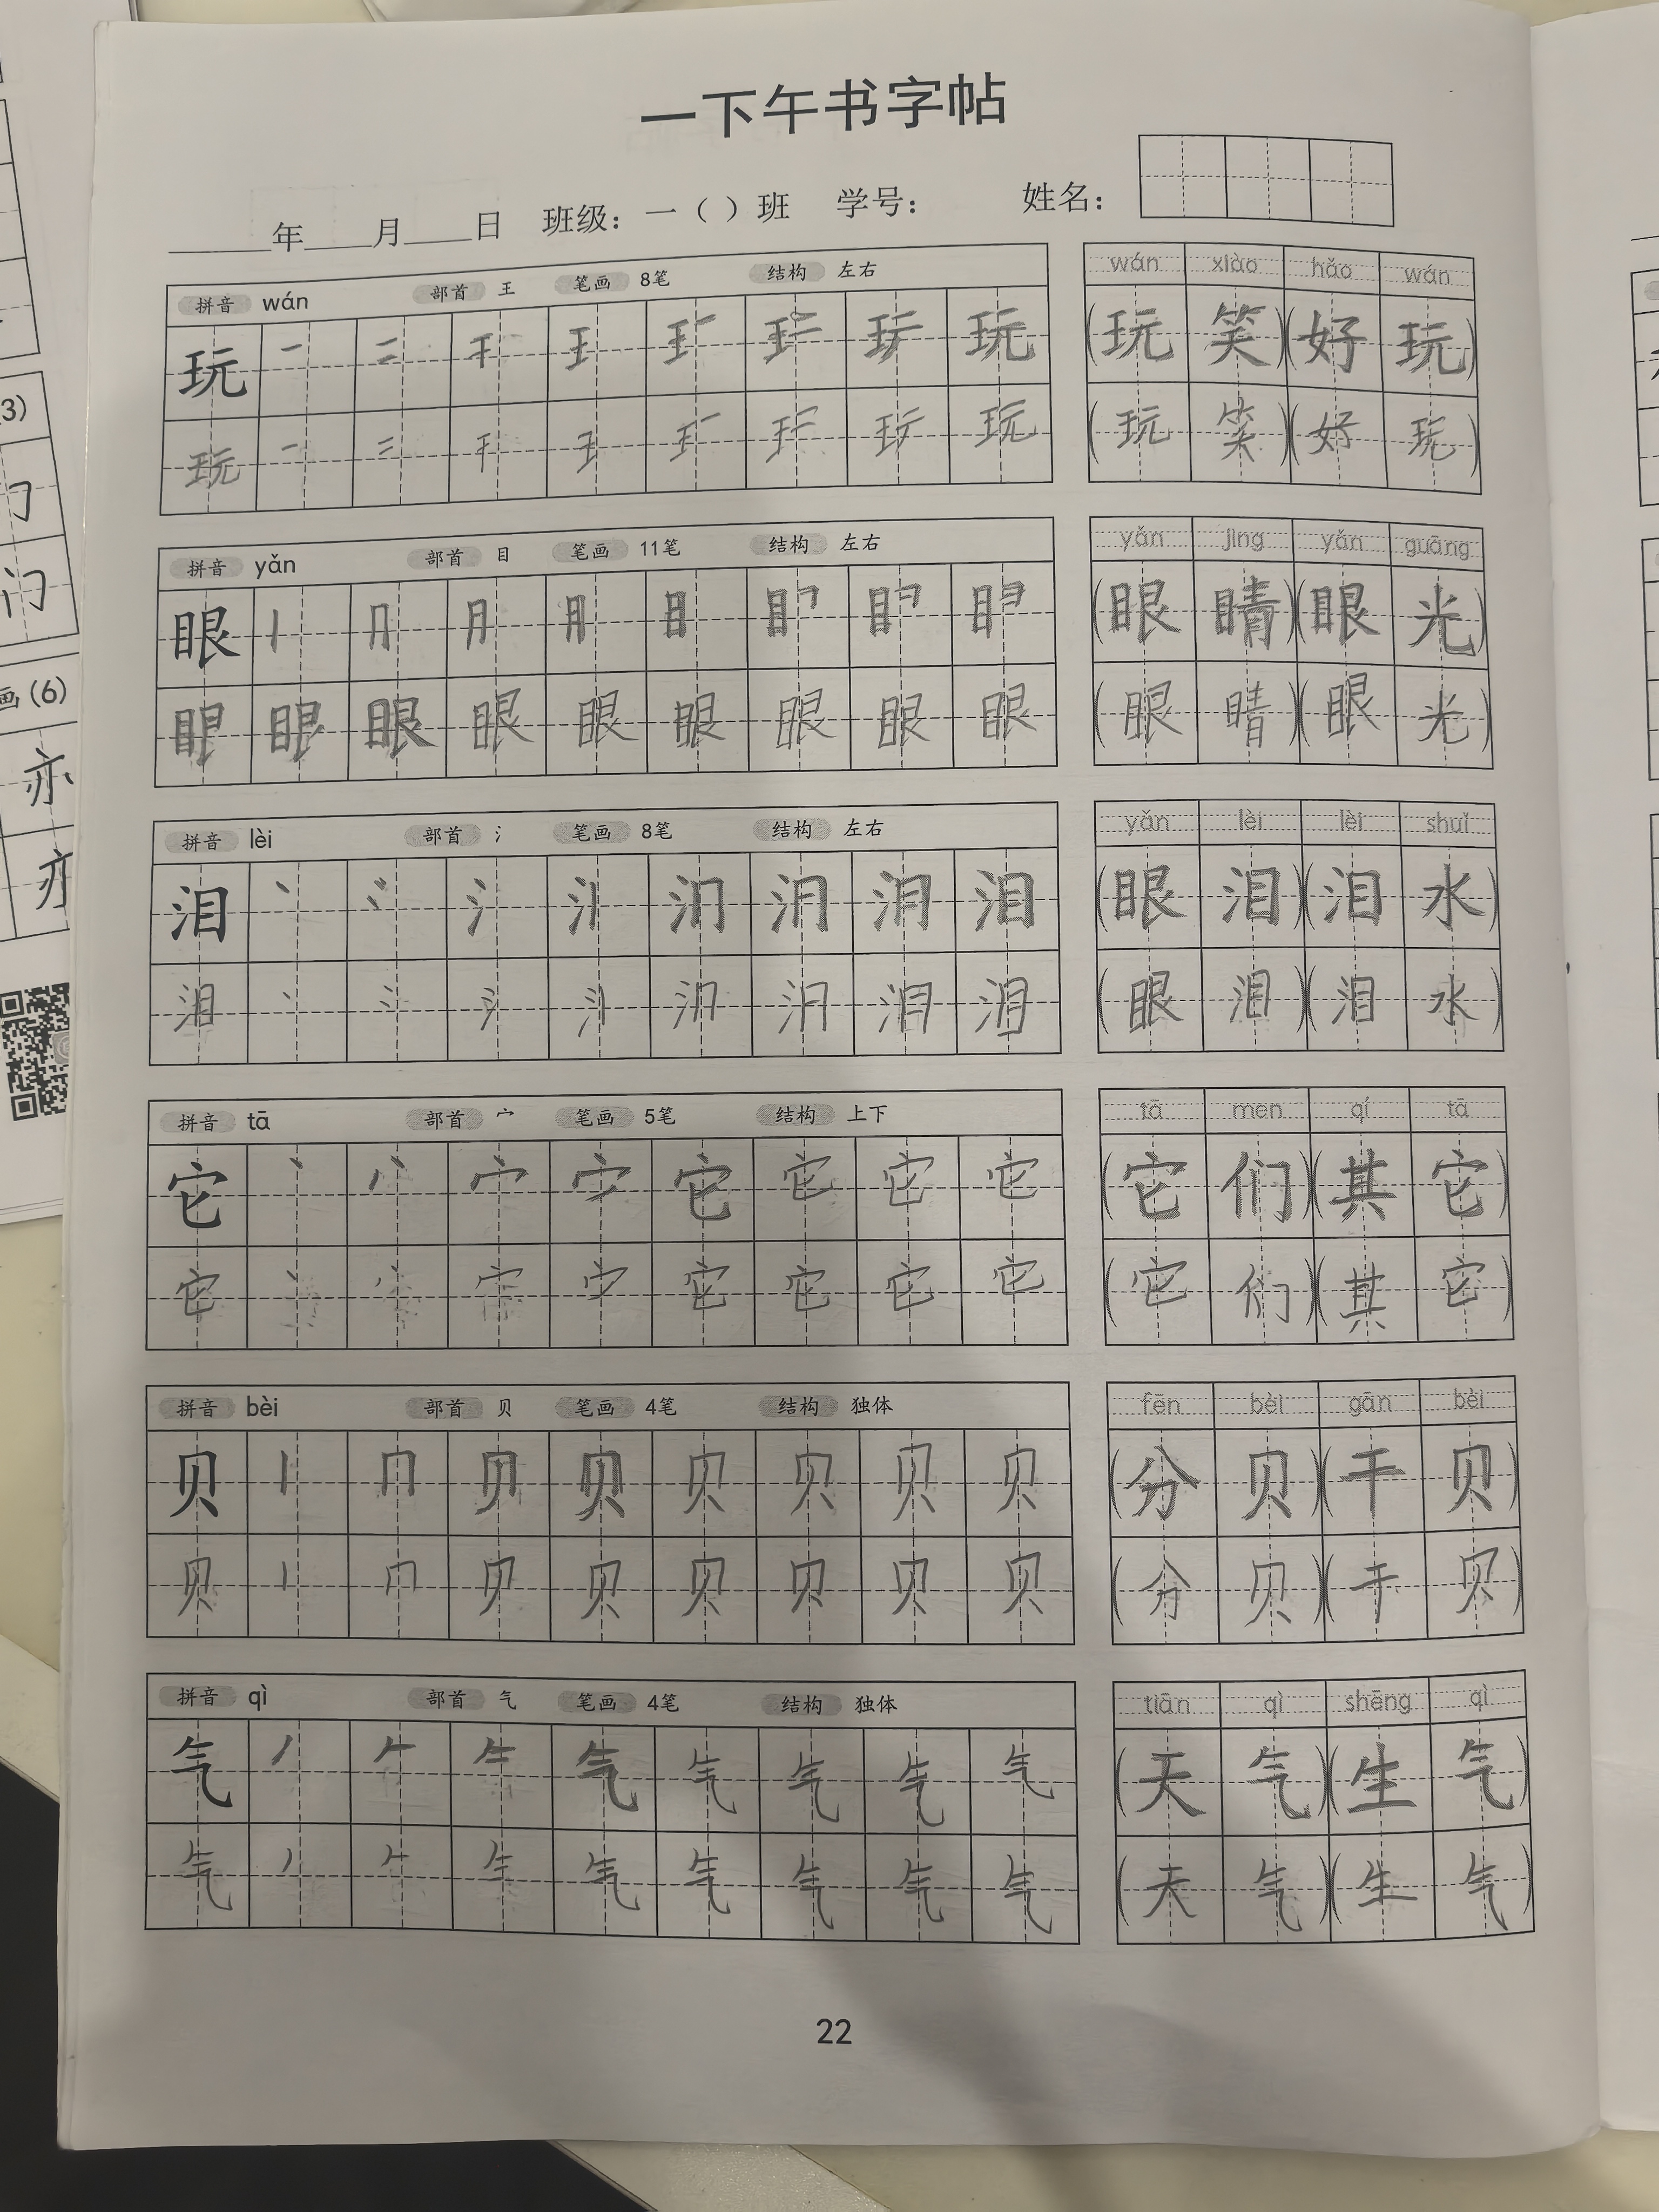 一下午书字帖
年 月 日 班级：一（ ）班 学号： 姓名：
拼音 wán 部首 王 笔画 8笔 结构 左右
玩 一 二 玩
玩 一 二 玩
wán xiào hǎo wán
(玩 笑)(好 玩)
(玩 笑)(好 玩)
拼音 yǎn 部首 目 笔画 11笔 结构 左右
眼 丨 冂 月 目
眼 眼 眼 眼 眼 眼 眼
yǎn jīng yǎn guāng
(眼 睛)(眼 光)
(眼 睛)(眼 光)
拼音 lèi 部首 氵 笔画 8笔 结构 左右
泪 丶 冫 氵 泪
泪 丶 冫 氵 泪
yǎn lèi lèi shuǐ
(眼 泪)(泪 水)
(眼 泪)(泪 水)
拼音 tā 部首 宀 笔画 5笔 结构 上下
它 丶 宀 它 它 它 它
它 丶 宀 它 它 它 它
tā men qí tā
(它 们)(其 它)
(它 们)(其 它)
拼音 bèi 部首 贝 笔画 4笔 结构 独体
贝 丨 冂 贝 贝 贝 贝 贝
贝 丨 冂 贝 贝 贝 贝 贝
fēn bèi gān bèi
(分 贝)(干 贝)
(分 贝)(干 贝)
拼音 qì 部首 气 笔画 4笔 结构 独体
气 丿 𠂉 气 气 气 气 气
气 丿 𠂉 气 气 气 气 气
tiān qì shēng qì
(天 气)(生 气)
(天 气)(生 气)
22
3)
门
画(6)
亦